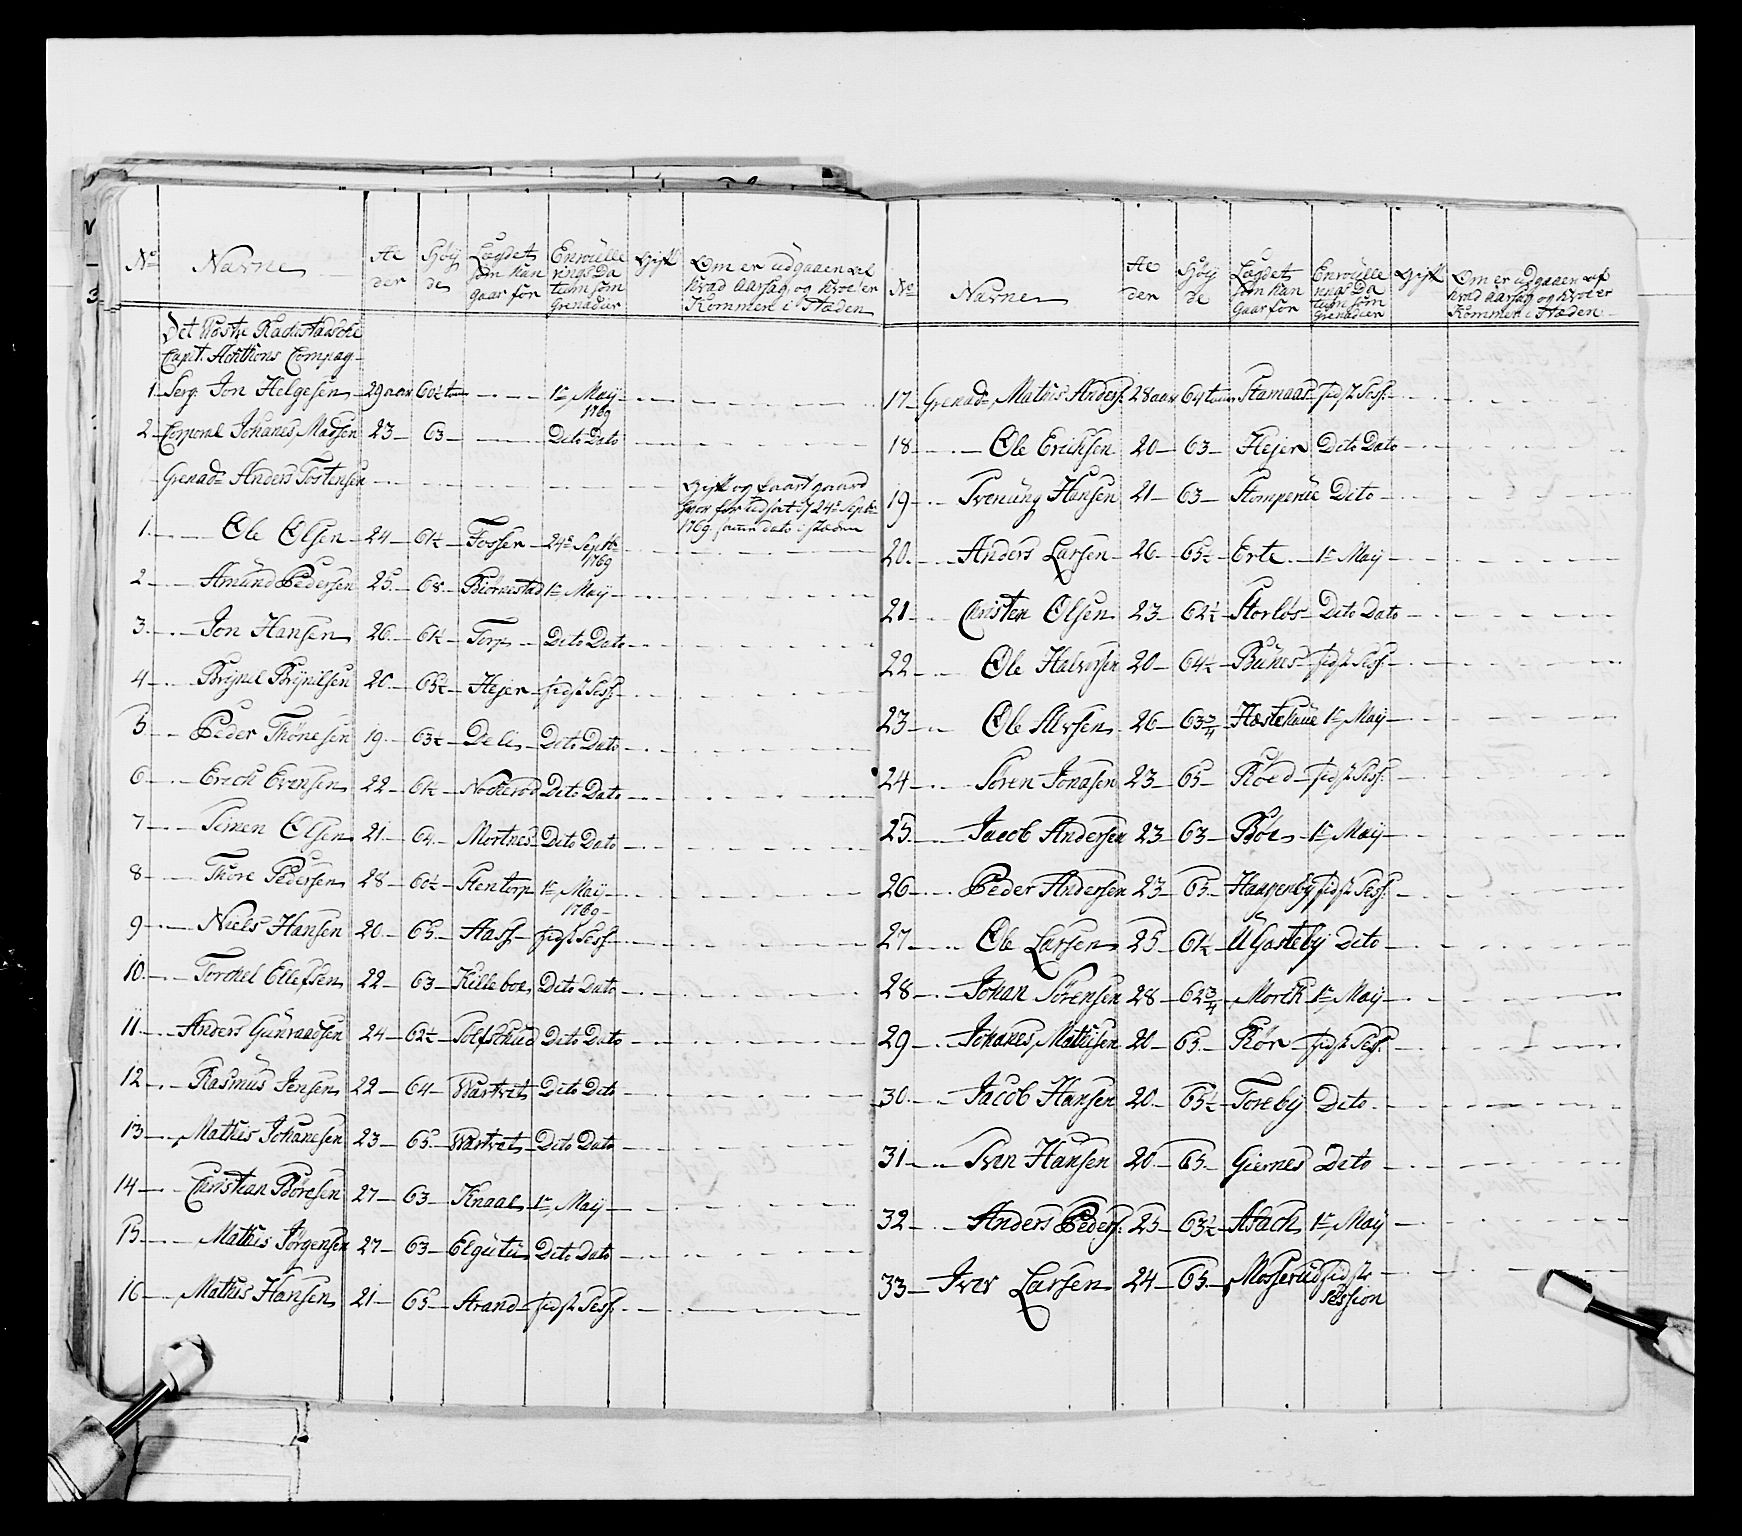 No Navne Al der Höy de Lægdet som han gaar for Enroulle rings Da tum som Grenadier Gift Om er udgaaen af hvad Aarsag og hvor er kommen i stæden
Capt. Compag
1 Serg. Jon Helgesen 29 aar 60½ tom 1e May 1769
2 Corporal Johanes Madsen 23 63 Dito Dato
Grenadr Anders Tostensen Gift og faaet gaard 24e Septbr 1769 dato i stæden
1. Ole Olsen 24 61½ Fosser 24e Septbr 1769
2 Amund Pedersen 25 68 Biörnestad 1e May
3. Jon Hansen 26 61½ Torp Dito Dato
4 Brynel Brynilsen 20 65½ Hejer sidst Sess:
5 Peder Thönesen 19 63½ Deli Dito Dato
6 Erich Evensen 22 61½ Nockerod Dito Dato
7 Simen Olsen 21 64 Mortnes Dito Dato
8 Thore Pedersen 28 60½ Stentorp 1e May 1769
9 Niels Hansen 20 65 Aass sidst Sess:
10. Torchel Ellefsen 22 63 Killeboe Dito Dato
11. Anders Gunvaldsen 24 62½ Dito Dato
12 Rasmus Jensen 22 64 Wartvet Dito Dito
13 Mathis Johanesen 23 65 Wartvet Dito Dato
14 Christian Böresen 27 63 Knaae 1e May
15 Mathis Jörgensen 27 63 Elgetü Dito Dato
16 Mathis Hansen 21 65 Strand sidst Sess:
No Navne Al der Höy de Lægdet som han Gaar for Enroulle rings Da tum som Grenadier Gift Om er udgaaen af hvad Aarsag og hvor er kommen i stæden
17 Grenadr Mathis Anders: 28 aar 64 tom Stamaas sidst Sess:
18 Ole Erichsen 20 63 Hejer Dito Dato
19 Svenüng Hansen 21 63 Stomperüe Dito
20. Anders Larsen 26 65½ Erte 1e May
21 Christen Olsen 23 62½ Storlös Dito Dato
22 Ole Halvorsen 20 64½ Bünes sidst Sess:
23 Ole Alvsen 26 63¾ Hæstehaüe 1e May
24 Sören Jonasen 23 65 Röed sidst Sess:
25 Jacob Andersen 23 63 Böe 1e May
26 Peder Andersen 23 65 Haagenby sidst Sess:
27 Ole Larsen 25 61½ U Gasteby Dito
28 Johan Sörensen 28 62¾ Morck 1e May
29 Johanes Mathisen 20 65 Rör sidst Sess:
30. Jacob Hansen 20 65½ Toreby Dito
31 Sven Hansen 20 65 Giernes Dito
32 Anders Peders: 25 63½ Asack 1e May
33 Iver Larsen 24 65 Mosserud sidste Session